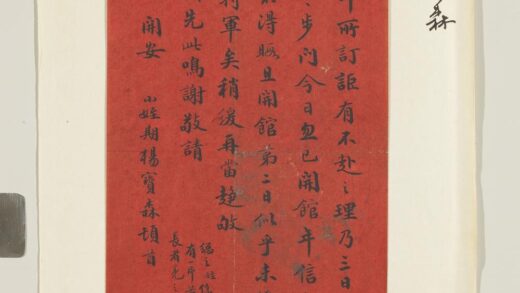 森
所訂詎有不赴之理乃三日
步问今日忽已開館年信
得暇且開館第二日似乎未
軍矣稍緩再當趨
先此鳴謝敬請
開安 小姪期楊寶森頓首
有一
長者